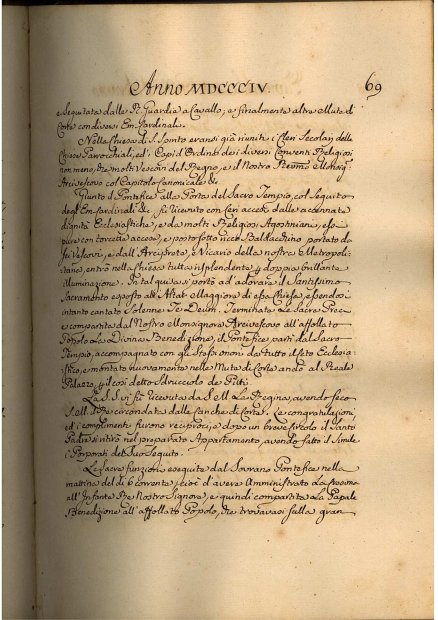 Anno MDCCCIV.
69
eseguitata dalle R. Guardie a Cavallo, e finalmente altra Muta di
Corte con diversi Em. Cardinali.
Nella Chiesa di S. Spirito eransi già riuniti i Cleri Secolari delle
Chiese Parrocchiali, ed i Capi d'Ordine dei diversi Conventi Religiosi
non meno, che molti Vescovi del Regno, e il Nostro Monsig.
Arcivescovo col Capitolo Canonicale &c.
Giunto il Pontefice alla Porta del Sacro Tempio, col Seguito
degli Em. Cardinali &c. fu ricevuto con Ceri accesi dalle accennate
dignità Ecclesiastiche, e da molti Religiosi Agostiniani, essi
pure con torcette accese, e posto sotto ricco Baldacchino portato da
sei Vescovi, e dall'Arciprete, e Vicario della nostra Metropoli-
tana, entrò nella Chiesa tutta risplendente p doppia brillante
illuminazione. In tal guisa si portò ad adorare il Santissimo
Sacramento esposto all'Altar Maggiore di essa Chiesa, essendosi
intanto cantato Solenne Te Deum. Terminate Le Sacre Preci
e compartita dal Nostro Monsignore Arcivescovo all'affollato
Popolo La Divina Benedizione, il Pontefice partì dal Sacro
Tempio, accompagnato con gli stessi onori da tutto il Ceto Ecclesia-
stico, e montato nuovamente nella Muta di Corte andò al Reale
Palazzo, p il così detto Sdrucciolo de Pitti.
La S. S. vi fu ricevuta da S. M. La Regina, avendo seco
S. M. il Re circondata dalle Cariche di Corte. Le congratulazioni,
ed i complimenti furono reciproci, e dopo un breve circolo il Santo
Padre si ritirò nel preparato Appartamento, avendo fatto il Simile
i Porporati del Suo Seguito.
Le Sacre funzioni eseguite dal Sovrano Pontefice nella
mattina del dì 6 corrente, cioè d'avere Amministrato La Cresima
all'Infante Re Nostro Signore, e quindi compartita La Papale
Benedizione all'affollato Popolo, che trovavasi sulla gran